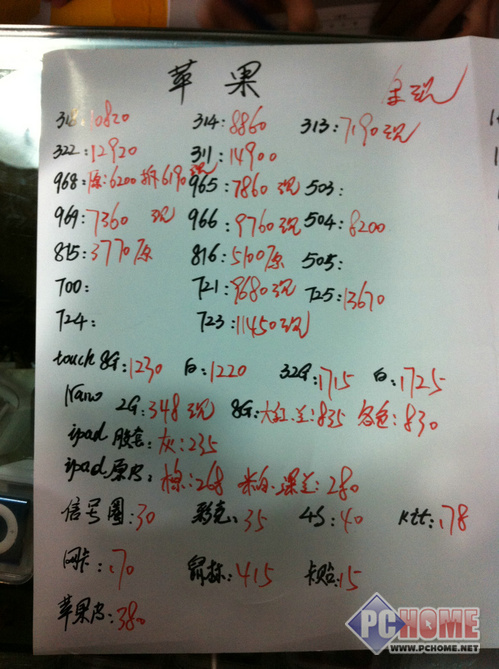 苹果 全现
318:10820 314:8860 313:7190现
322:12920 311:14900
968:原:6200 拆6190现 965:7860现 503:
969:7360 现 966:9760现 504:8200
815:3770原 816:5100原 505:
700: 721:9680现 725:13670
724: 723:11450现
touch 8G:1230 白:1220 32G:1715 白:1725
Nano 2G:348现 8G:大红.兰:835 各色:830
ipad胶套:灰:235
ipad原皮:棕:268 米白.深兰:280
信号圈:30 彩壳:35 4S:40 Ktt:178
网卡:70 鼠标:415 卡贴:15
苹果皮:380
PCHOME
WWW.PCHOME.NET